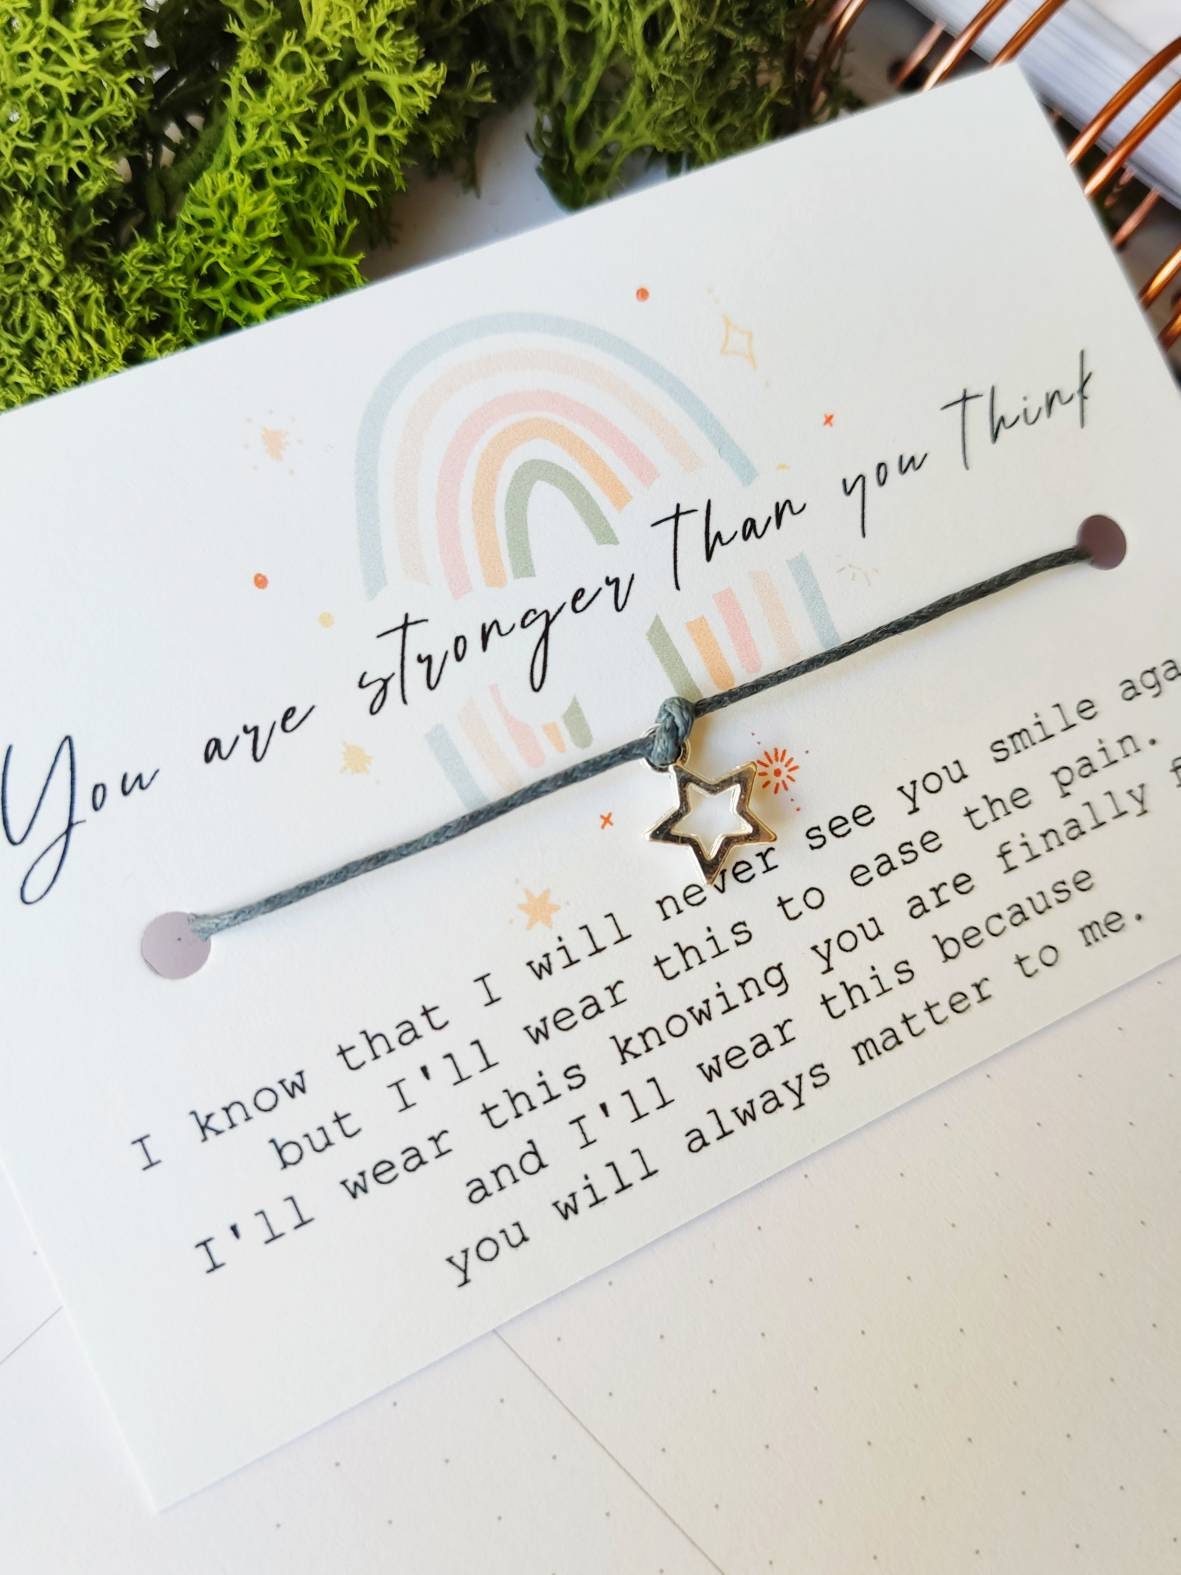 You are stronger than you think
I know that I will never see you smile aga
but I'll wear this to ease the pain.
I'll wear this knowing you are finally f
and I'll wear this because
you will always matter to me.